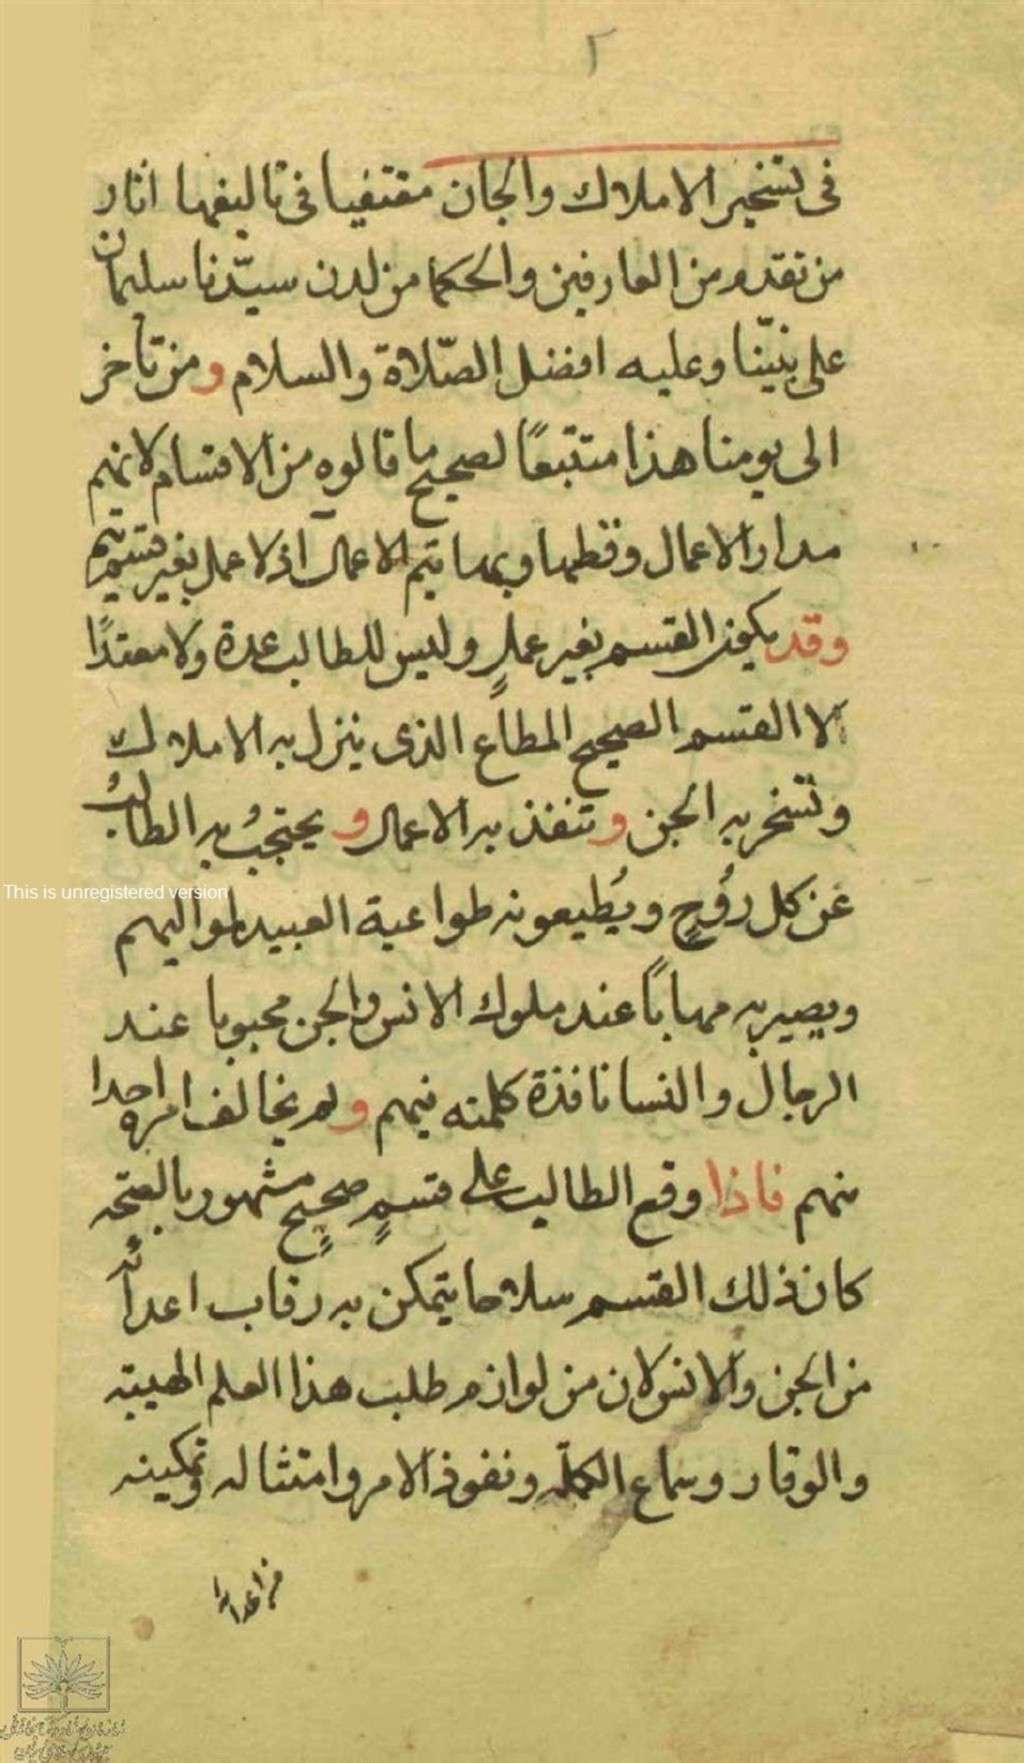 ٢
فى تسخير الاملاك والجان مقتفيا فى تاليفها اثار
من تقدم من العارفين والحكما من لدن سيّدنا سليمان
على نبيّنا وعليه افضل الصّلاة والسلام ومن تأخر
الى يومنا هذا متتبعًا لصحيح ما قالوه من الاقسام لانهم
مدار الاعمال وقطبها وبها تتم الاعمال اذ لا عمل بغير قسم يتم
وقد يكون القسم بغير عملٍ وليس للطالب عدة ولا معتدًا
الا القسم الصحيح المطاع الذى ينزل به الاملاك
وتسخر به الجن وتنفذ به الاعمال ويحتجبُ به الطالبُ
عن كل رُوحٍ ويُطيعونه طواعية العبيد لمواليهم
ويصير به مهابًا عند ملوك الانس والجن محبوبا عند
الرجال والنسا نافذة كلمته فيهم ولم يخالف امره احدا
منهم فاذا وقع الطالب على قسمٍ صحيحٍ مشهور بالصحة
كان ذلك القسم سلاحا يتمكن به رقاب اعدائه
من الجن والانس لان من لوازم طلب هذا العلم الهيبة
والوقار وسماع الكلمة ونفوذ الامر وامتثاله وتمكينه
من اعدائه
This is unregistered version